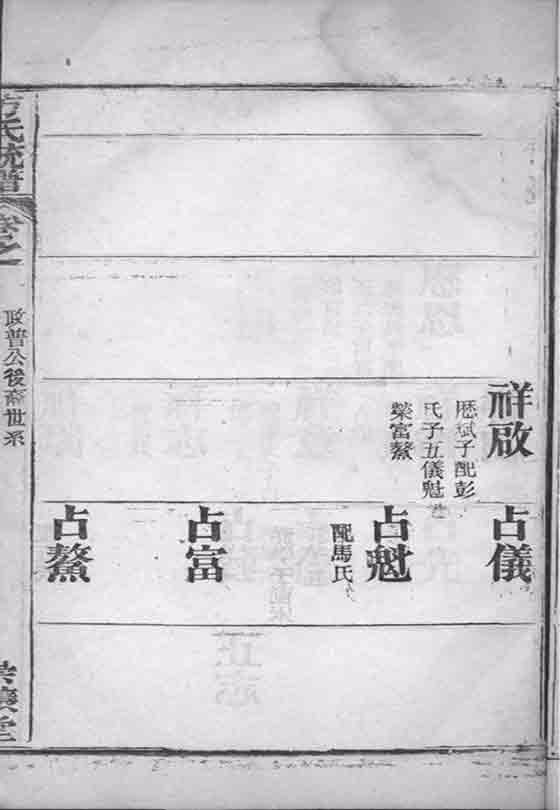 祥啟
歷斌子配彭
氏子五儀魁
榮富鰲
占儀
占魁
配馬氏
占富
占鰲
氏統譜
卷之一
政普公後裔世系